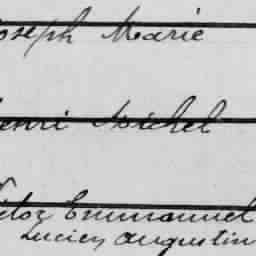 Joseph Marie
Henri Michel
Victor Emmanuel
Lucien Augustin